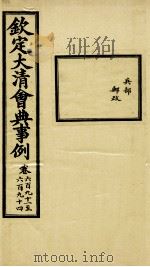 兵部
郵政
欽定大清會典事例
卷六百九十一至
六百九十四